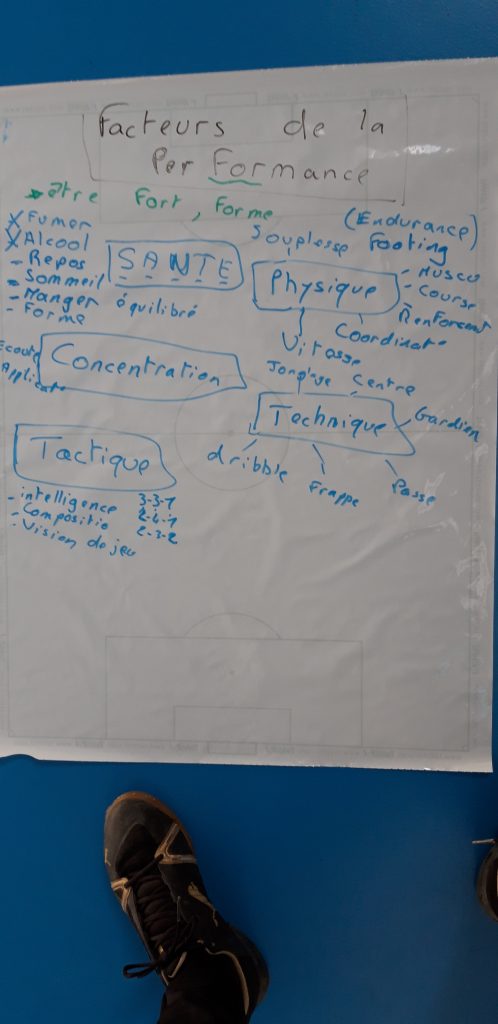 Facteurs de la
Performance
être Fort, Forme
X Fumer
X Alcool
- Repos
- Sommeil
- Manger équilibré
- Forme
SANTE
(Endurance)
Souplesse Footing
Physique
- Muscu
- Course
- Renforcent
Coordinat
Vitasse
Ecoute
Applicat
Concentration
Jonglage Centre
Technique
Gardien
dribble
Frappe
Passe
Tactique
- intelligence 3-3-1
- Compositio 2-4-1
- Vision de jeu 2-3-2